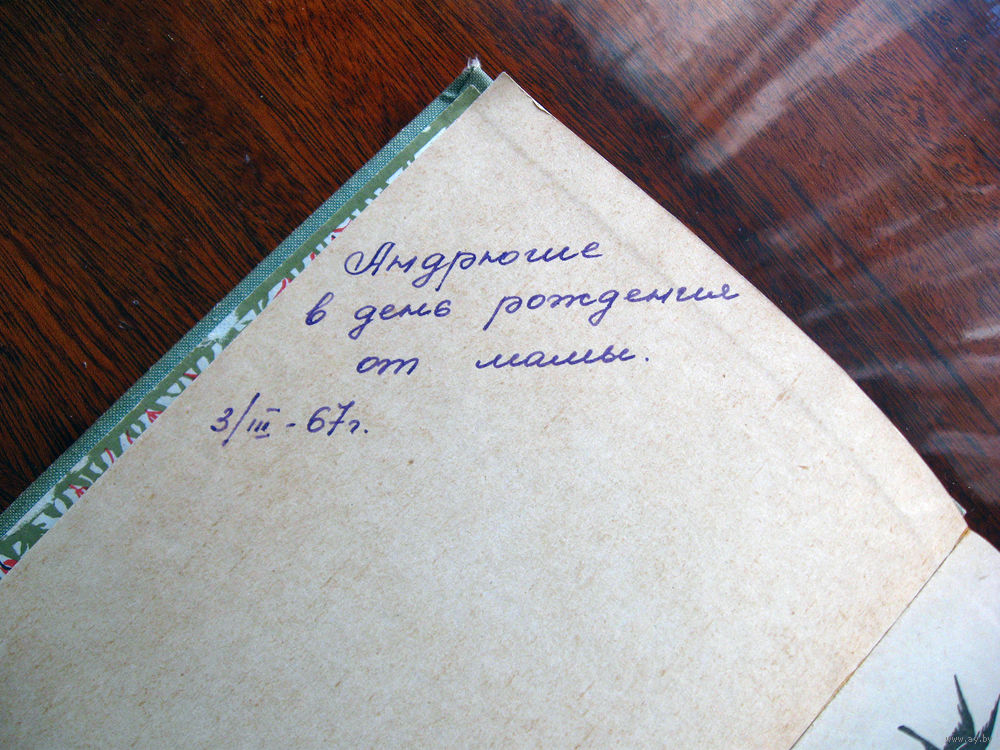 Андрюше
в день рождения
от мамы.
3/III - 67г.
www.ay.by